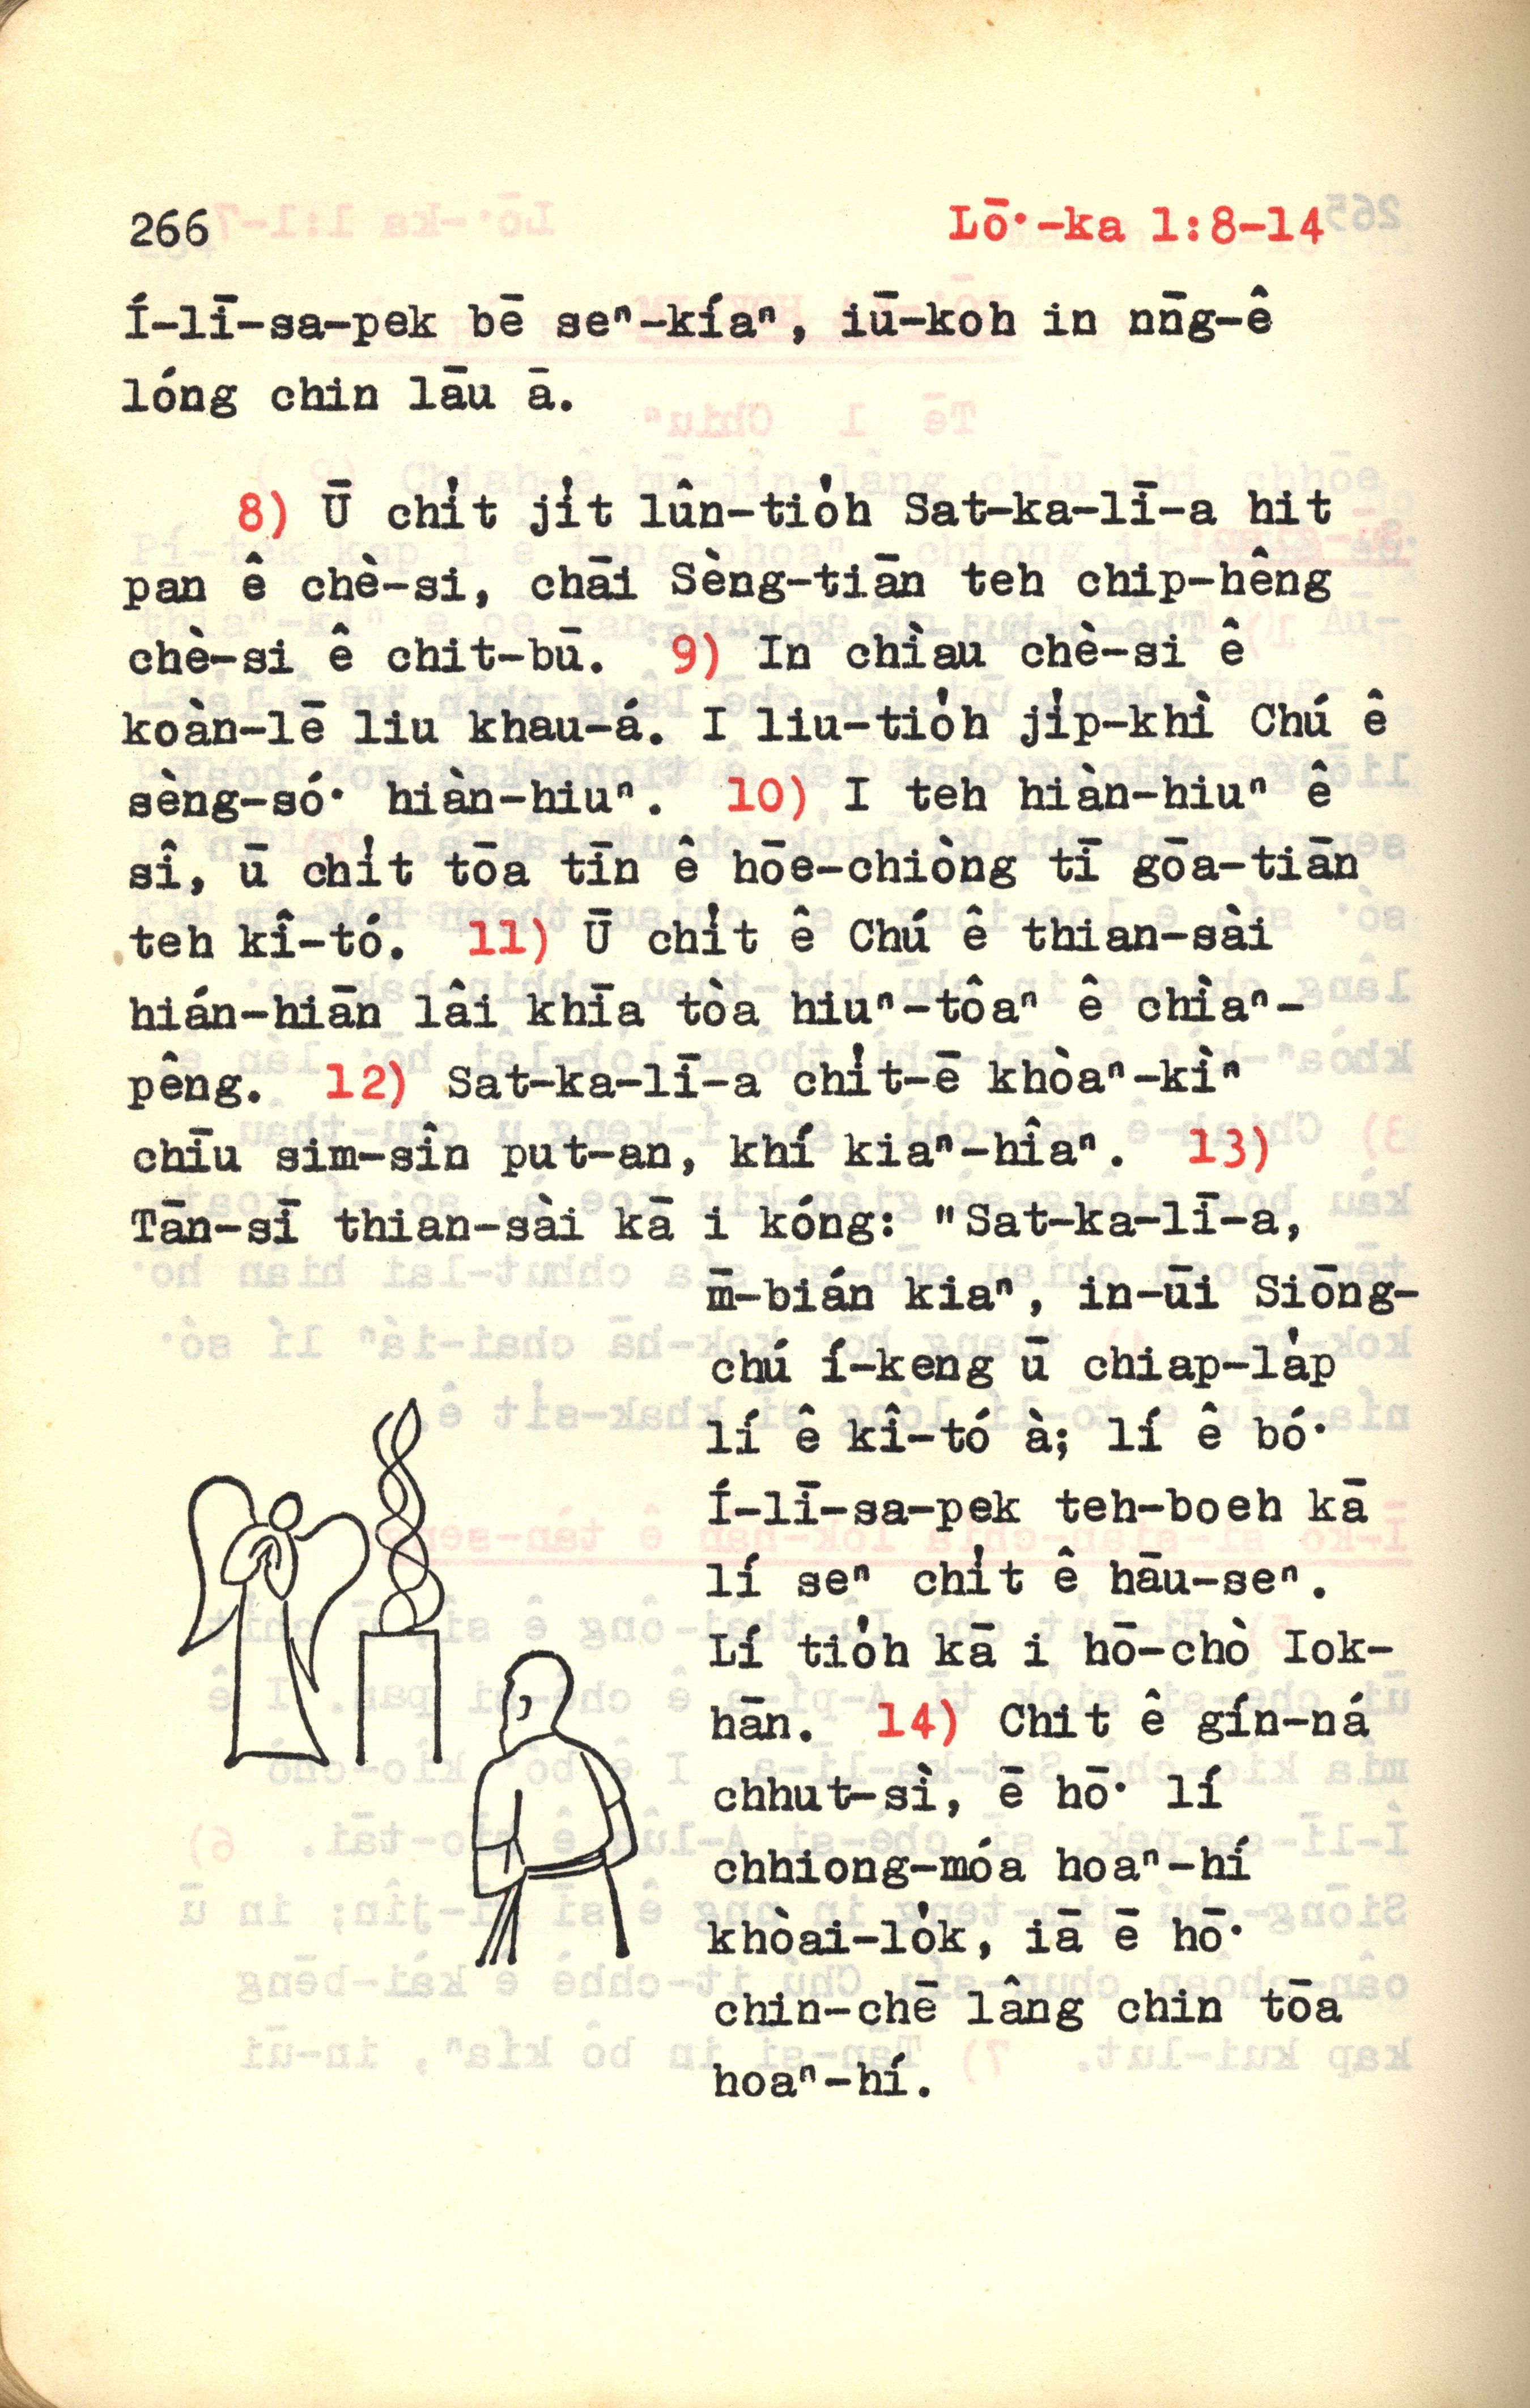 266 Lō͘-ka 1:8-14
Í-lī-sa-pek bē seⁿ-kíaⁿ, iū-koh in nn̄g-ê
lóng chin lāu ā.
8) Ū chi̍t ji̍t lûn-tio̍h Sat-ka-lī-a hit
pan ê chè-si, chāi Sèng-tiān teh chip-hêng
chè-si ê chit-bū. 9) In chìau chè-si ê
koàn-lē liu khau-á. I liu-tio̍h ji̍p-khì Chú ê
sèng-só͘ hiàn-hiuⁿ. 10) I teh hiàn-hiuⁿ ê
sî, ū chi̍t tōa tīn ê hōe-chiòng tī gōa-tiān
teh kî-tó. 11) Ū chi̍t ê Chú ê thian-sài
hián-hiān lâi khīa tòa hiuⁿ-tôaⁿ ê chìaⁿ-
pêng. 12) Sat-ka-lī-a chi̍t-ē khòaⁿ-kìⁿ
chīu sim-sîn put-an, khí kiaⁿ-hîaⁿ. 13)
Tān-sī thian-sài kā i kóng: "Sat-ka-lī-a,
m̄-bián kiaⁿ, in-ūi Siōng-
chú í-keng ū chiap-la̍p
lí ê kî-tó à; lí ê bó͘
Í-lī-sa-pek teh-boeh kā
lí seⁿ chi̍t ê hāu-seⁿ.
Lí tio̍h kā i hō-chò Iok-
hān. 14) Chit ê gín-ná
chhut-sì, ē hō͘ lí
chhiong-móa hoaⁿ-hí
khòai-lo̍k, iā ē hō͘
chin-chē lâng chin tōa
hoaⁿ-hí.